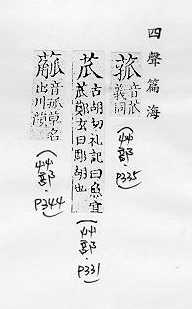 四聲篇海
菰
音苽
義同
(艸部.P335)
苽
古胡切礼記曰魚宜
苽鄭玄曰彫胡也
(艸部.P331)
音孤草名
出川韻
(艸部.P344)